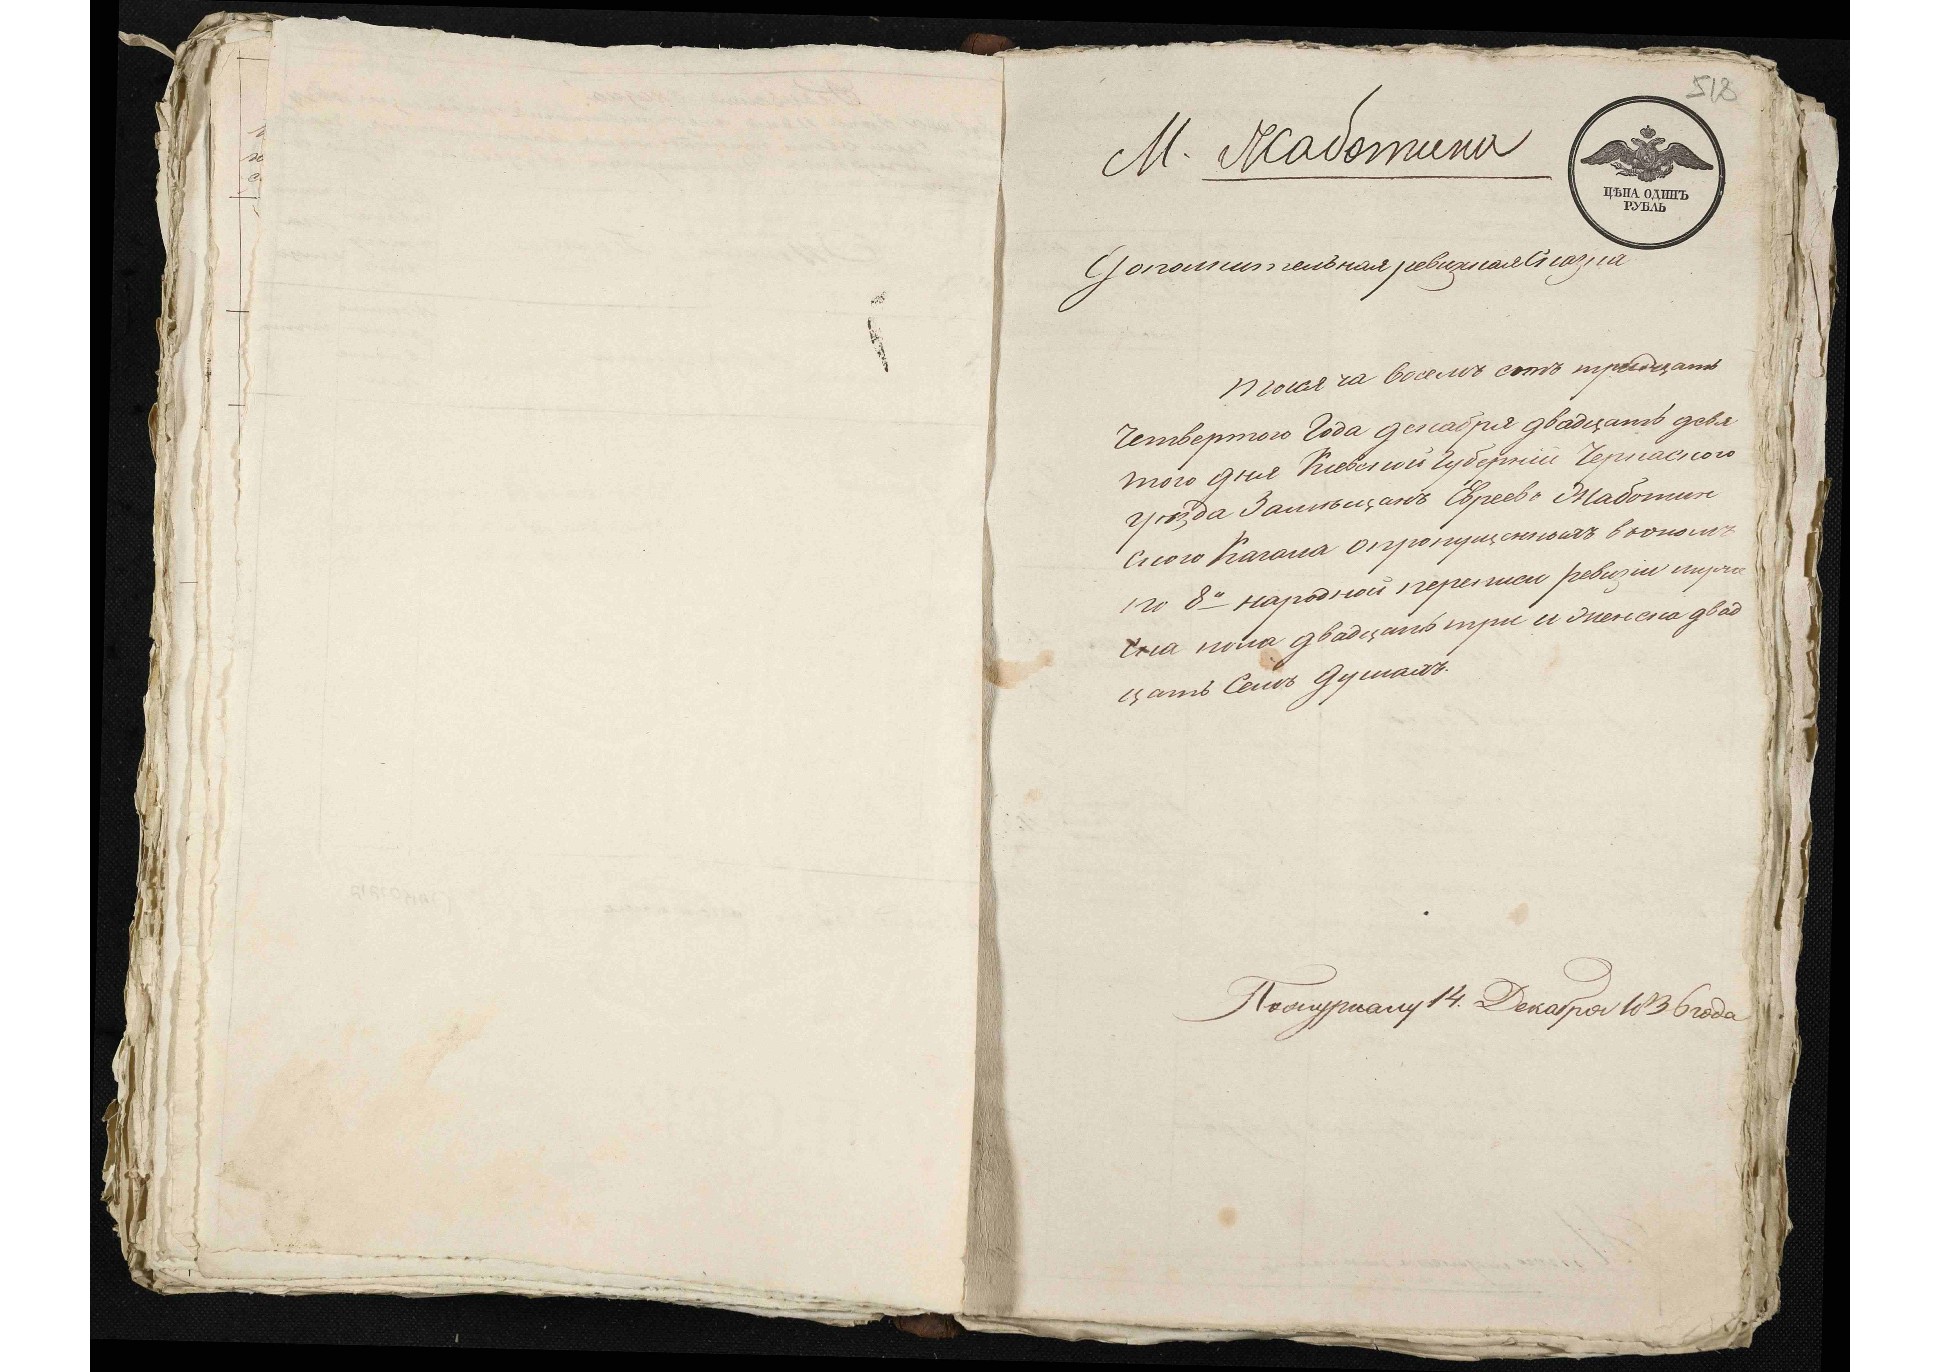 518
М. Жаботина
ЦѢНА ОДИНЪ
РУБЛЬ
Дополнительная ревизская Сказка
Тысяча восемь сотъ тридцать
Четвертого Года декабря двадцать девя
того дня Киевской Губерніи Черкаского
уѣзда Замѣщанъ Евреевъ Жаботин
ского Кагала опропущенныхъ
по 8й народной переписи ревизіи муже
ска пола двадцать три и женска двад
цать Семь душахъ.
Пожурналу 14. Декабря 1836 года